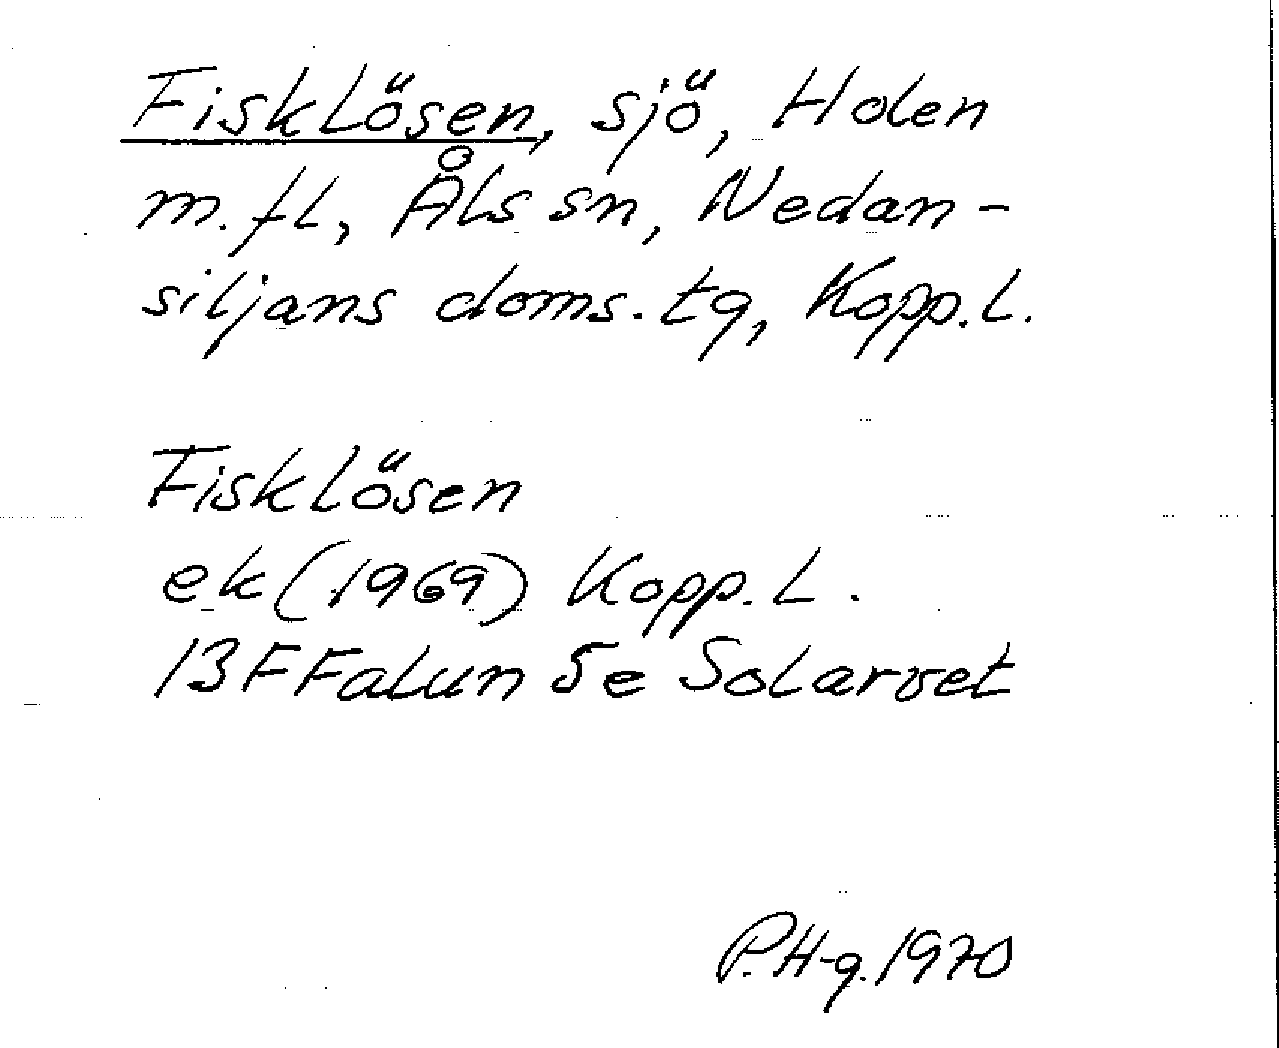 Fisklösen, sjö, Holen
m.fl, Åls sn, Nedan-
siljans doms.tg, Kopp.l.
Fisklösen
ek(1969) Kopp.l.
13F Falun 5e Solarvet
P.H-g.1970